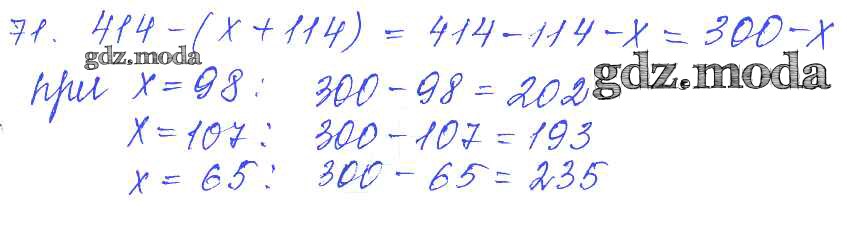 71. 414 - (x + 114) = 414 - 114 - x = 300 - x
gdz.moda
при x = 98: 300 - 98 = 202
gdz.moda
x = 107: 300 - 107 = 193
x = 65: 300 - 65 = 235